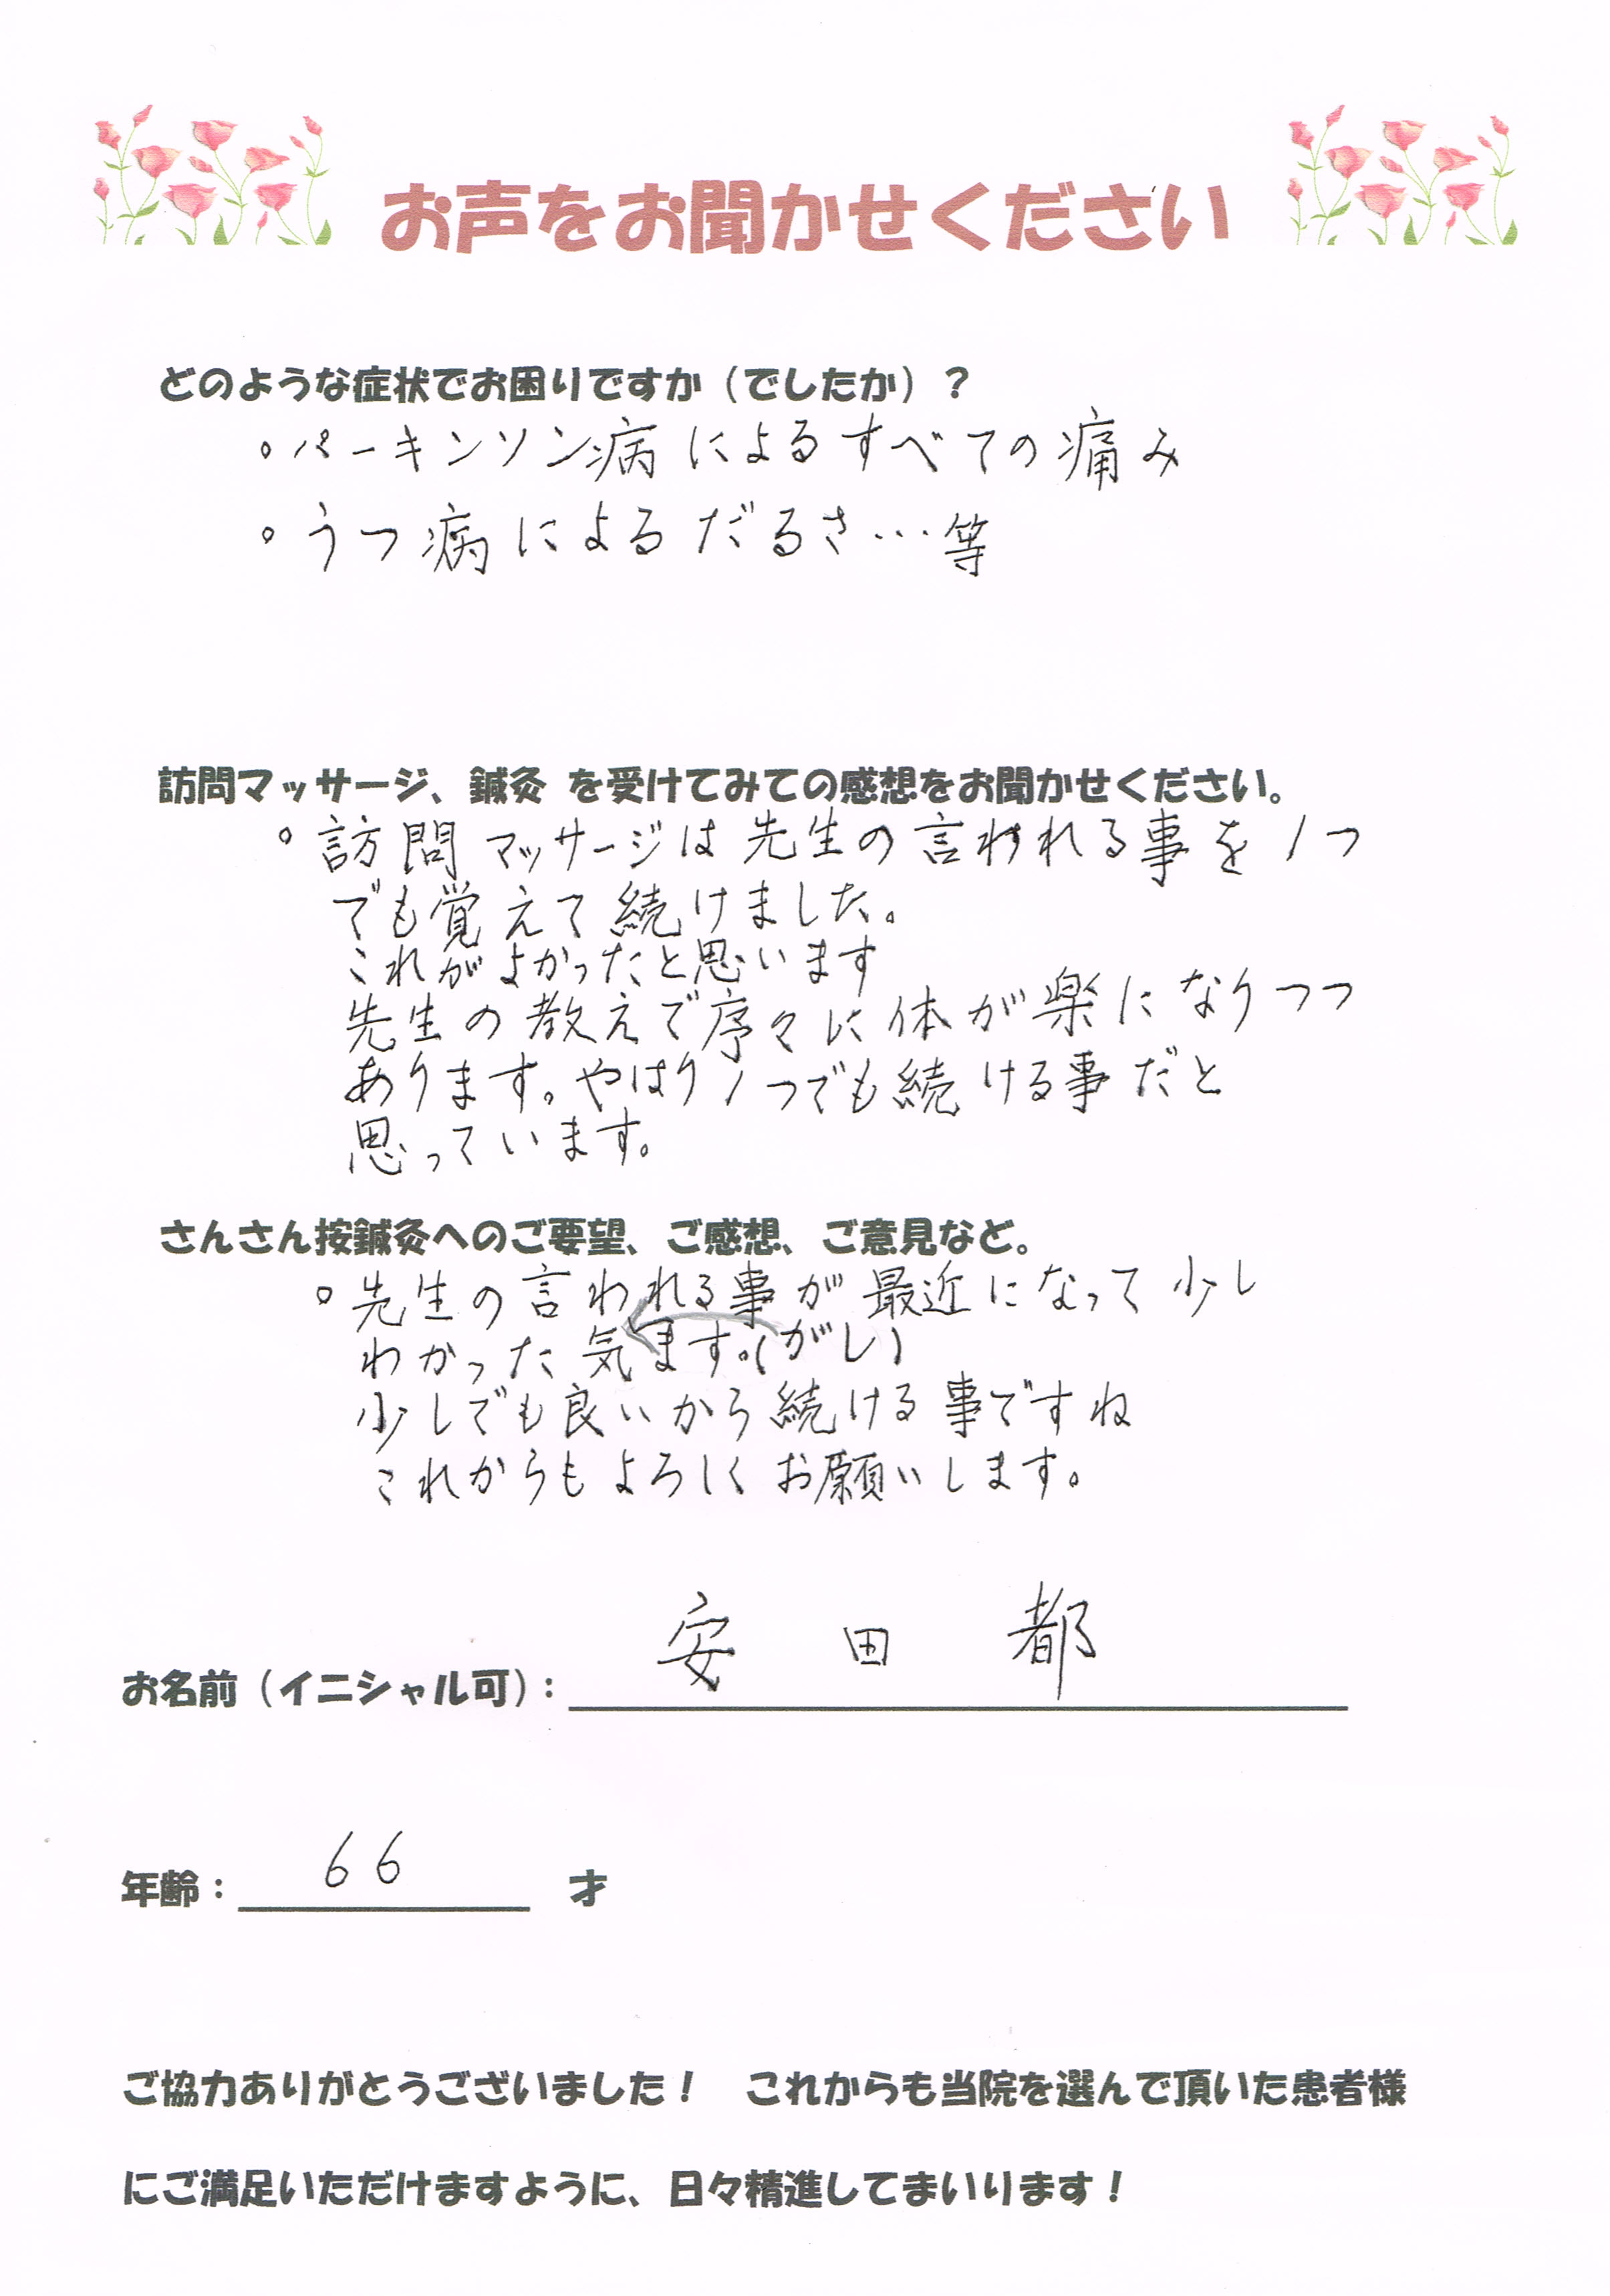 お声をお聞かせください
どのような症状でお困りですか（でしたか）？
。パーキンソン病によるすべての痛み
。うつ病によるだるさ…等
訪問マッサージ、鍼灸 を受けてみての感想をお聞かせください。
。訪問マッサージは先生の言われる事を1つ
でも覚えて続けました。
これがよかったと思います
先生の教えで序々に体が楽になりつつ
あります。やはり1つでも続ける事だと
思っています。
さんさん按鍼灸へのご要望、ご感想、ご意見など。
。先生の言われる事が最近になって少し
わかった気ます。(がし)
少しでも良いから続ける事ですね
これからもよろしくお願いします。
お名前（イニシャル可）：安田 都
年齢：66 才
ご協力ありがとうございました！ これからも当院を選んで頂いた患者様
にご満足いただけますように、日々精進してまいります！